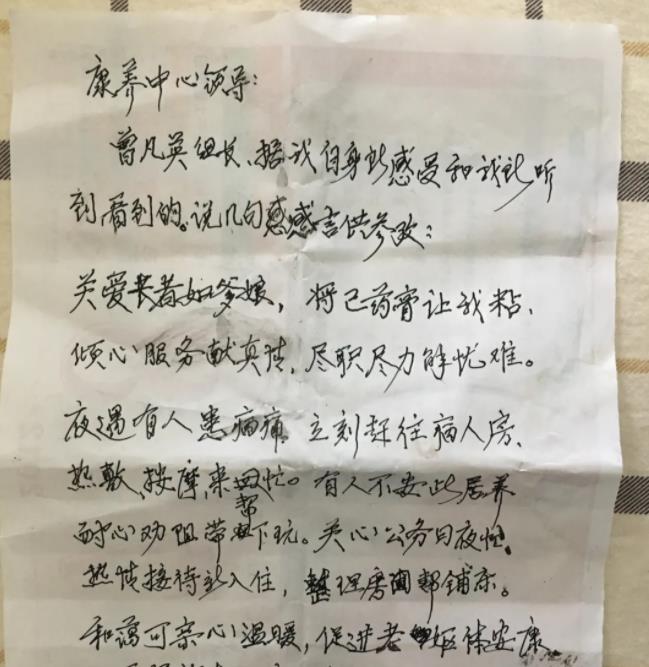 康养中心领导:
曾凡英组长、据我自身所感受和我所听
到,看到的。说几句感言供参改:
关爱长者如爹娘,将己药膏让我粘、
倾心服务献真情,尽职尽力解忧难。
夜遇有人患病痛 立刻赶往病人房、
热敷,按摩,来回忙。有人不安此居养
耐心劝阻带下玩。关心公务日夜忙、
热情接待新入住,整理房间帮铺床。
和蔼可亲心温暖,促进老体安康